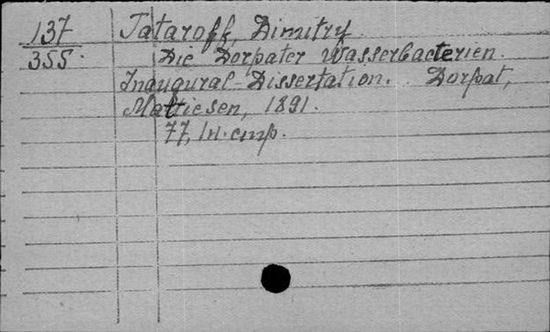 137 Tataroff, Dimitry
355. Die Dorpater Wasserbacterien.
Inaugural-Dissertation. Dorpat,
Mattiesen, 1891.
77, 1н. стр.